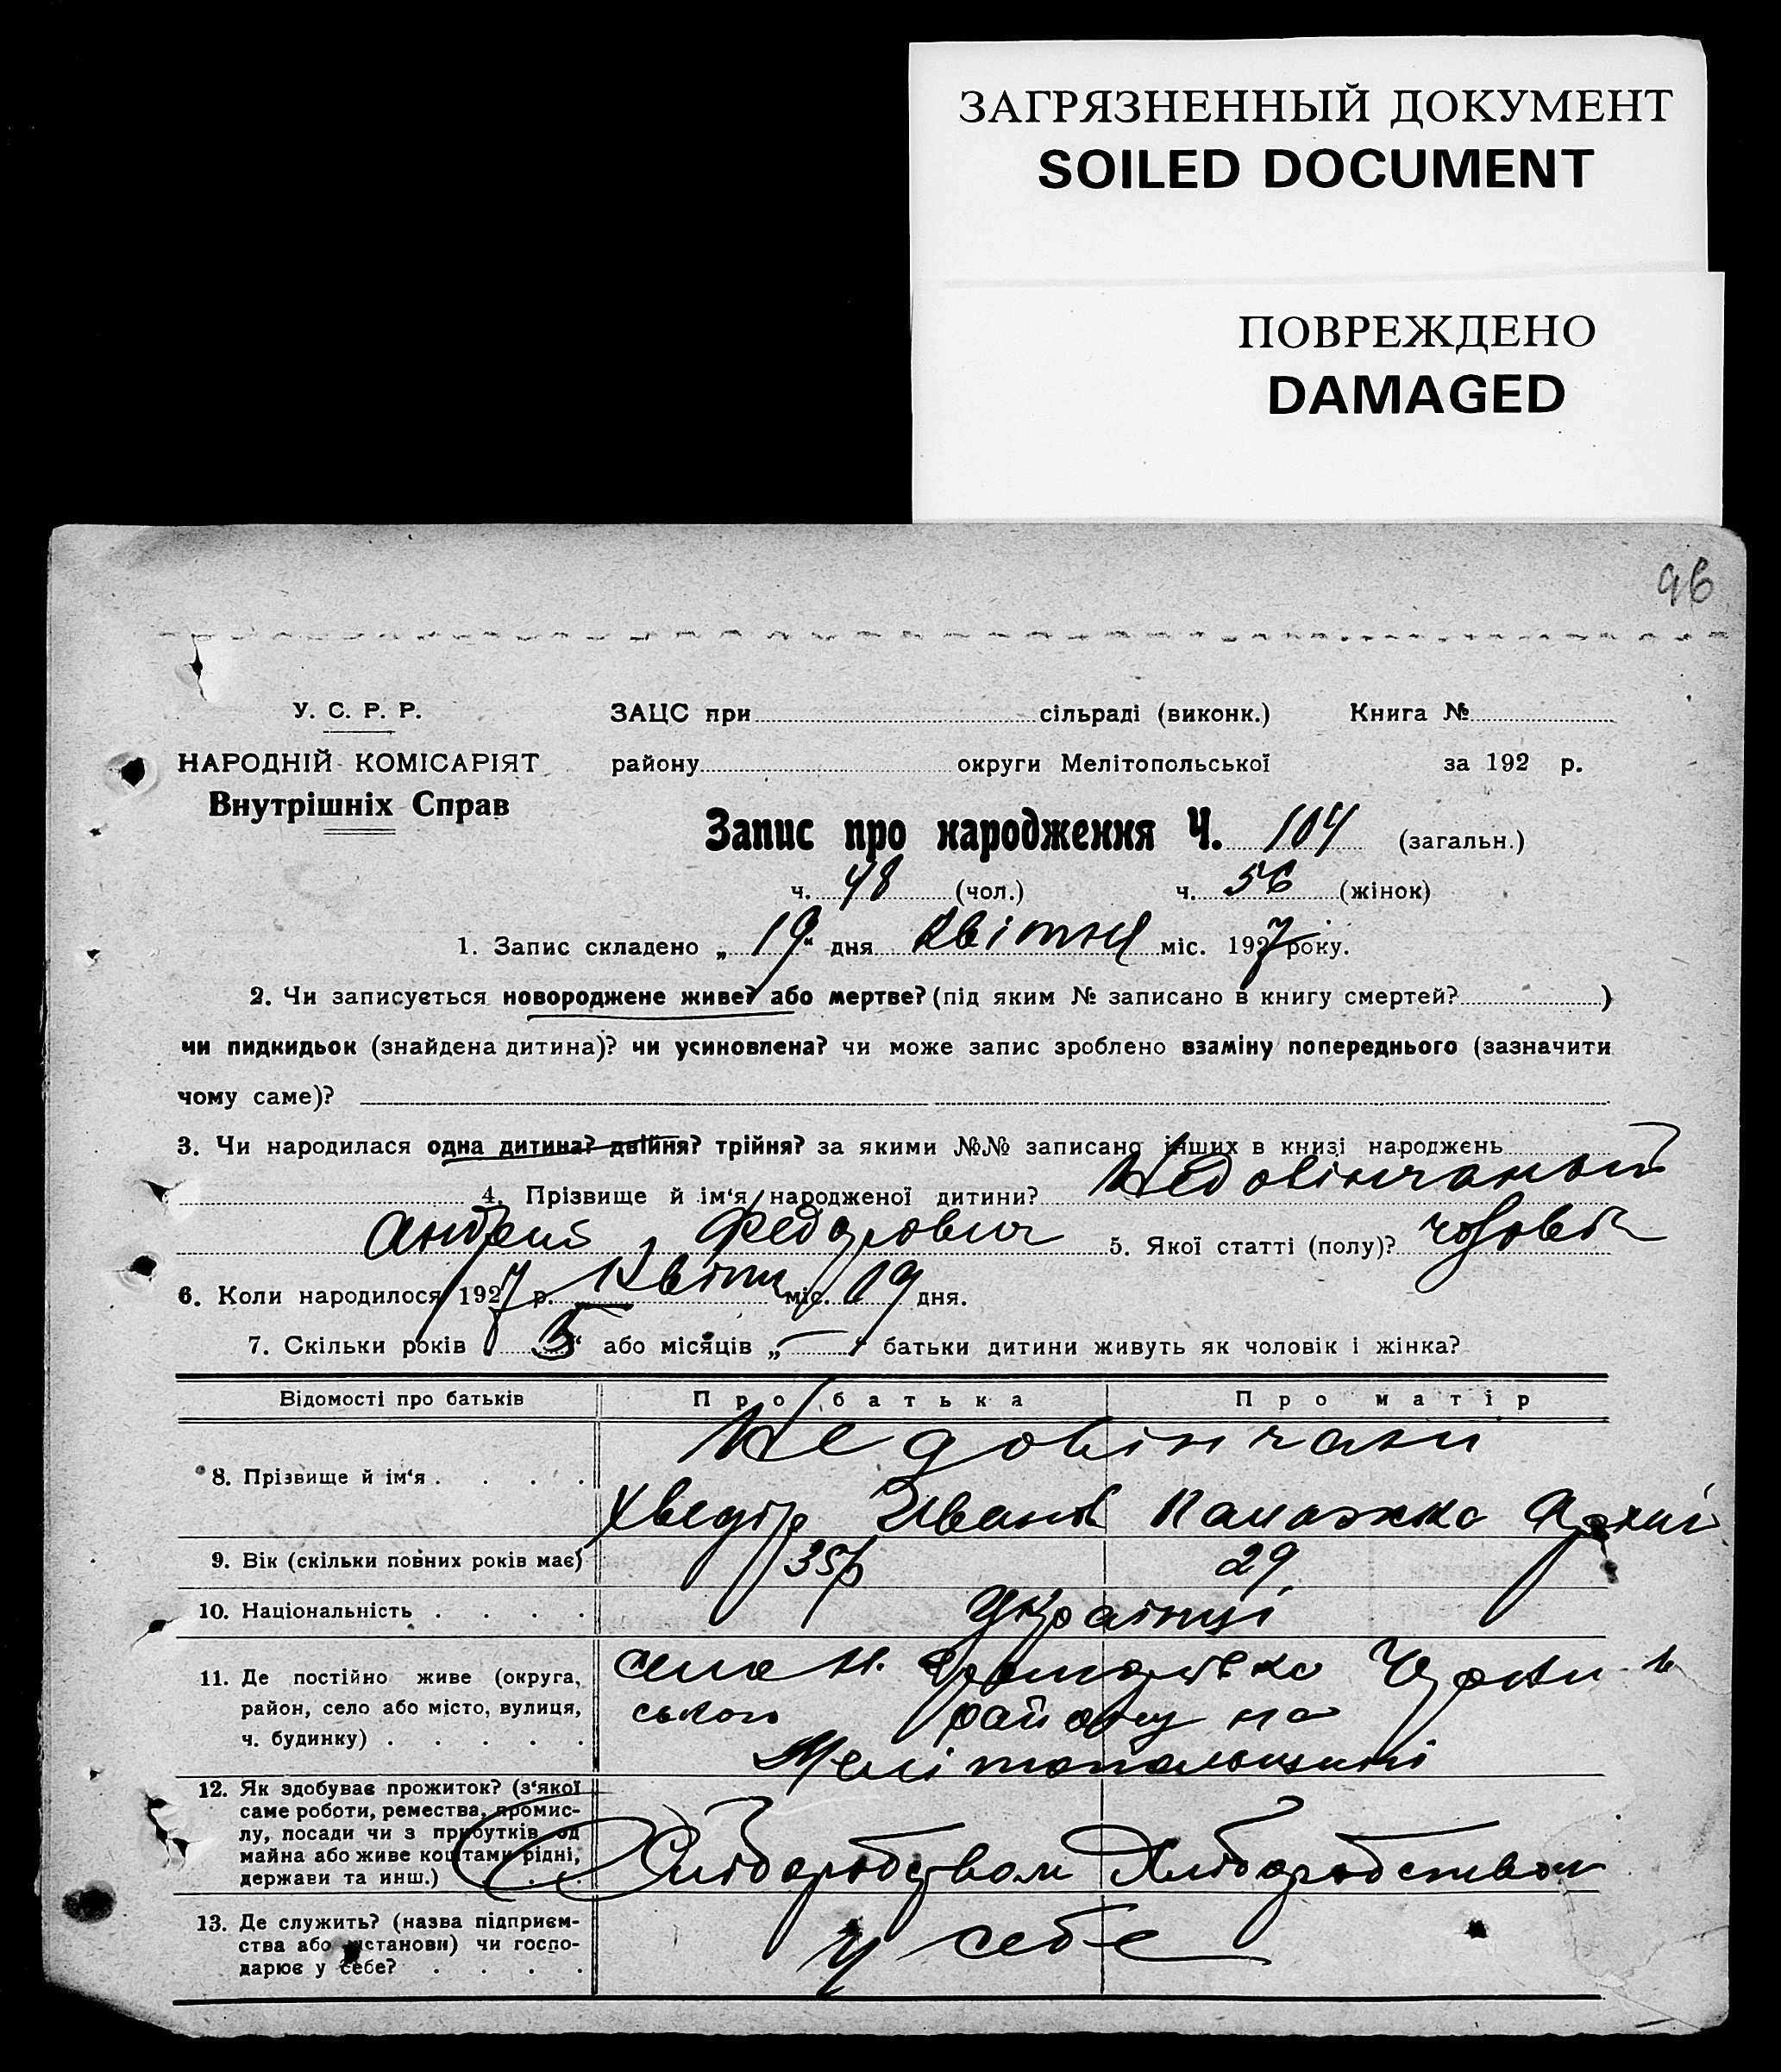 ЗАГРЯЗНЕННЫЙ ДОКУМЕНТ
SOILED DOCUMENT
ПОВРЕЖДЕНО
DAMAGED
96
У. С. Р. Р.
НАРОДНІЙ КОМІСАРІЯТ
Внутрішніх Справ
ЗАЦС при сільраді (виконк.) Книга №
району округи Мелітопольської за 192 р.
Запис про народження Ч. 104 (загальн.)
ч. 48 (чол.) ч. 56 (жінок)
1. Запис складено „ 19 “ дня Квітня міс. 1927 року.
2. Чи записується новороджене живе? або мертве? (під яким № записано в книгу смертей? )
чи пидкидьок (знайдена дитина)? чи усиновлена? чи може запис зроблено взаміну попереднього (зазначити
чому саме)?
3. Чи народилася одна дитина? двійня? трійня? за якими №№ записано інших в книзі народжень
4. Прізвище й ім‘я народженої дитини? Недовінчаный
Андрей Федорович 5. Якої статті (полу)? чоловік
6. Коли народилося 1927 р. Квітня міс. 19 дня.
7. Скільки років „ 5 “ або місяців „ — “ батьки дитини живуть як чоловік і жінка?
Відомості про батьків Про батька Про матір
8. Прізвище й ім‘я . . . . Недовінчани
Хведір Іванів Палажка
9. Вік (скільки повних років має) 35р 29
10. Національність . . . . Українці
11. Де постійно живе (округа,
район, село або місто, вулиця,
ч. будинку) . . . . .
село Н.
ського району на
Мелітопольщині
12. Як здобуває прожиток? (з‘якої
саме роботи, ремества, промис-
лу, посади чи з прибутків од
майна або живе коштами рідні,
держави та инш.) . . .
Хліборобством Хліборобством
13. Де служить? (назва підприєм-
ства або установи) чи госпо-
дарює у себе? . . . .
у себе